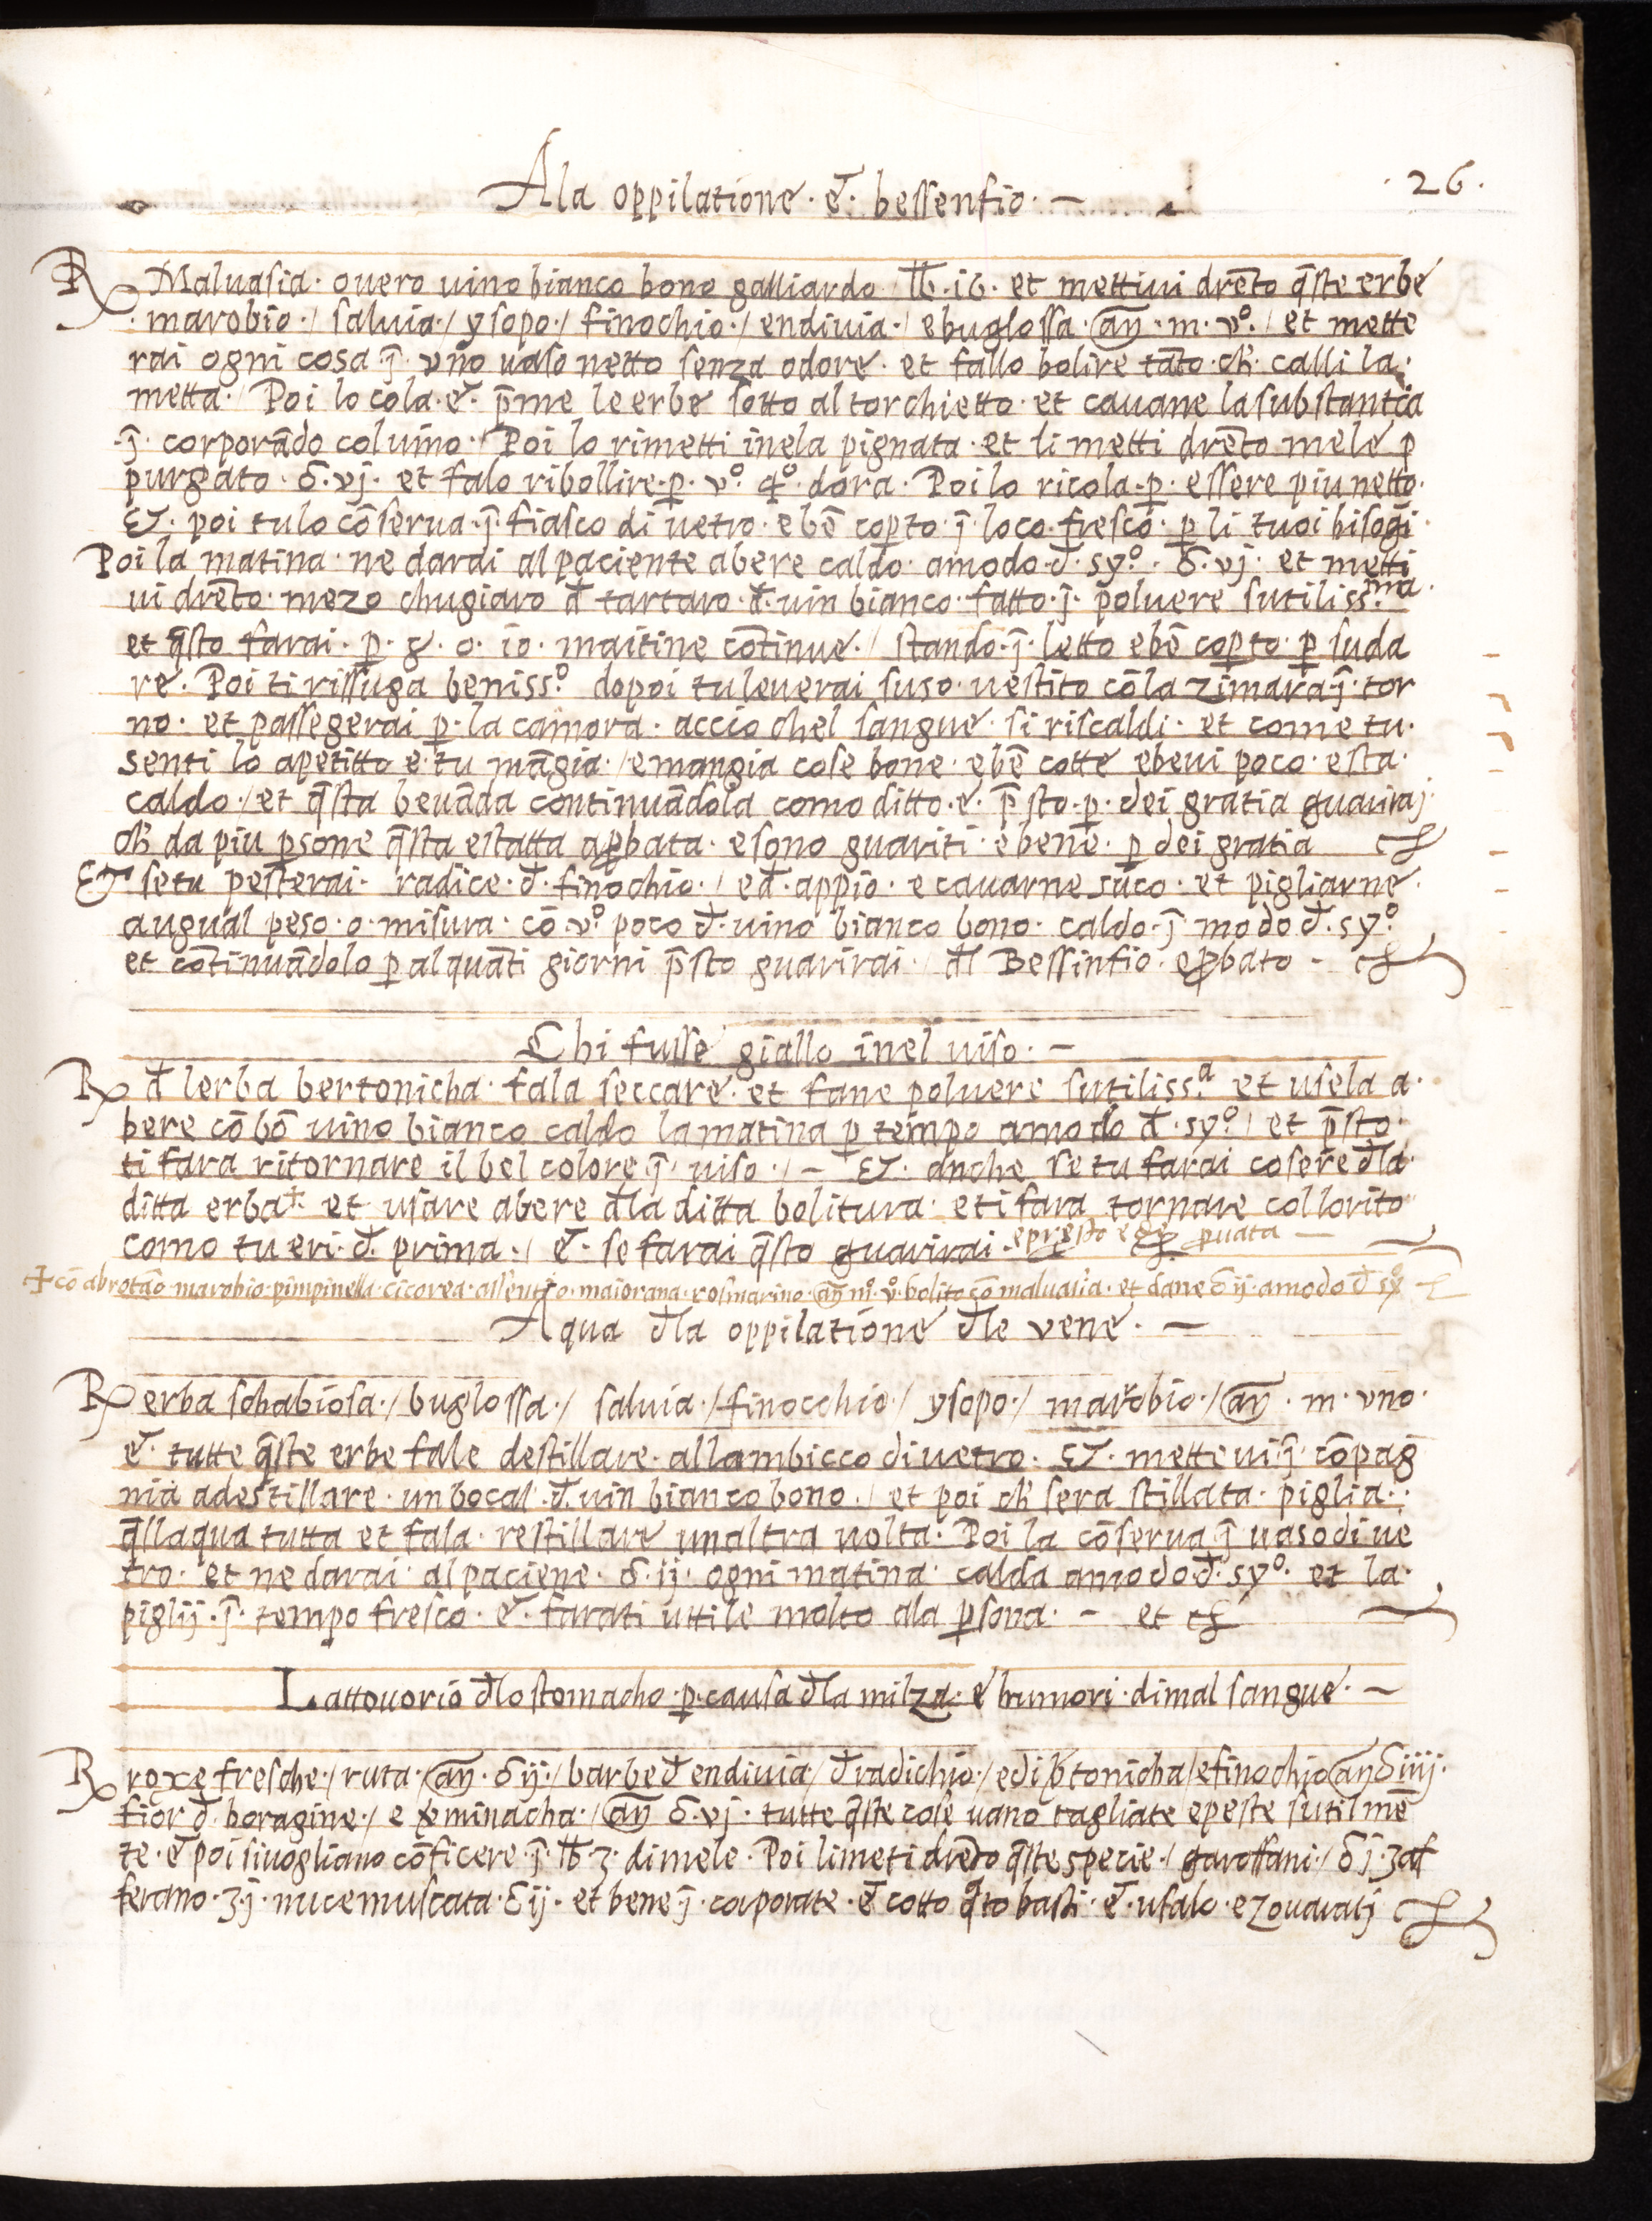 Ala oppilatione · et̃ · bessenfio · —
· 26 ·
℞ Maluasia · ouero uino bianco bono galliardo · lb · i6 · et mettiui drẽto q̃ste erbe
· marobio · / saluia · / ysopo · / finochio · / endiuia · / e buglossa · añ · m · vº · / et mette
rai ogni cosa ȷ̃ · vno uaso netto senza odore · et fallo bolire tãto · ch̃ · calli la ·
metta · / Poi lo cola · e · p̃me le erbe sotto al torchietto · et cauane la substantia
· ȷ̃ · corporãdo col uino · / Poi lo rimetti inela pignata · et li metti drẽto mele p̱
purgato · δ · vj · et falo ribollire · p̱ · vº · qº · dora · Poi lo ricola · p̱ · essere piu netto ·
Et · poi tu lo cõserua · ȷ̃ · fiasco di uetro · e bẽ cop̱to · ȷ̃ · loco · fresco · p̱ li tuoi bisogi ·
Poi la matina · ne darai al paciente abere caldo · amodo · d̃ · syº · δ · vj · et metti
ui drẽto · mezo chugiaro d̃ tartaro · d̃ · uin bianco · fatto · ȷ̃ · poluere sutiliss.ma ·
et q̃sto farai · p̱ · 8 · o · io · maitine cõtinue · / stando · ȷ̃ · letto e bẽ cop̱to · p̱ suda
re · Poi ti rissuga beniss.º dopoi tu leuerai suso · uestito cõ la zimara ȷ̃ · tor
no · et passegerai p̱ · la camora · accio chel sangue · si riscaldi · et come tu ·
senti lo apetitto e · tu mãgia · / e mangia cose bone · e bẽ cotte e beui poco · esta ·
caldo · / et q̃sta beuãda continuãdola como ditto · e · p̃sto · p̱ · dei gratia guariraj ·
ch̃ da piu p̱sone q̃sta estatta ap̱bata · e sono guariti · e bene · p̱ dei gratia
Et se tu pesterai · radice · d̃ · finochio · / e d̃ · appio · e cauarne suco · et pigliarne ·
augual peso · o · misura · cõ · vº poco d̃ · uino bianco bono · caldo · ȷ̃ · modo d̃ · syº
et cõtinuãdolo p̱ alquãti giorni p̃sto guarirai · / d̃l Bessinfio · ep̱bato -
Chi fusse giallo inel uiso · —
℞ d̃ lerba bertonicha · fala seccare · et fane poluere sutiliss.a et usela a ·
bere cõ bõ uino bianco caldo la matina p̱ tempo amodo d̃ · syº / et p̃sto ·
ti fara ritornare il bel colore ȷ̃ · uiso · / – Et · anche se tu farai cosere d̃la ·
ditta erba ☩ · et usare abere d̃la ditta bolitura · eti fara tornare collorito
como tu eri · d̃ · prima · / e · se farai q̃sto guarirai · e presto
☩ cõ abrotão · marobio · pimpinella · cicorea · assentio · maiorana · rosmarino · añ mº · vº · bolito cõ maluasia · et dane δ ij · amodo d̃ syº
Aqua d̃la oppilatione d̃le vene · —
℞ erba schabiosa · / buglossa · / saluia · / finocchio / ysopo · / marobio · / añ · m · vno ·
e · tutte q̃ste erbe fale destillare · allambicco di uetro · Et · mette ui ȷ̃ · cõpag
nia adestillare · un bocal · d̃ · uin bianco bono · / et poi ch̃ sera stillata · piglia ·
q̃llaqua tutta et fala · restillare unaltra uolta · Poi la cõserua ȷ̃ uaso di ue
tro · et ne darai · al paciene · δ · ij · ogni matina · calda amodo · d̃ · syº · et la ·
piglij · ȷ̃ · tempo fresco · e · farati uttile molto ala p̱sona · – et
Lattouorio d̃lo stomacho · p̱ · causa d̃la milza · e humori · di mal sangue · —
℞ roxe fresche · / ruta · añ · δ ij · / barbe d̃ endiuia / d̃ radichio · / e di b̃tonicha / e finochio añ δ iiij ·
fior d̃ · boragine · / e minacha · / añ δ · vj · tutte q̃ste cose uano tagliate e peste sutilmẽ
te · e poi si uogliano cõficere · ȷ̃ · lb · 3 · di mele · Poi li meti drẽto q̃ste specie · / garoffani · / δ j · zaf
ferano · ʒ j · nuce muscata · δ ij · et bene ȷ̃ · corporate · e cotto q̃to basti · e · usalo · e zouaratj